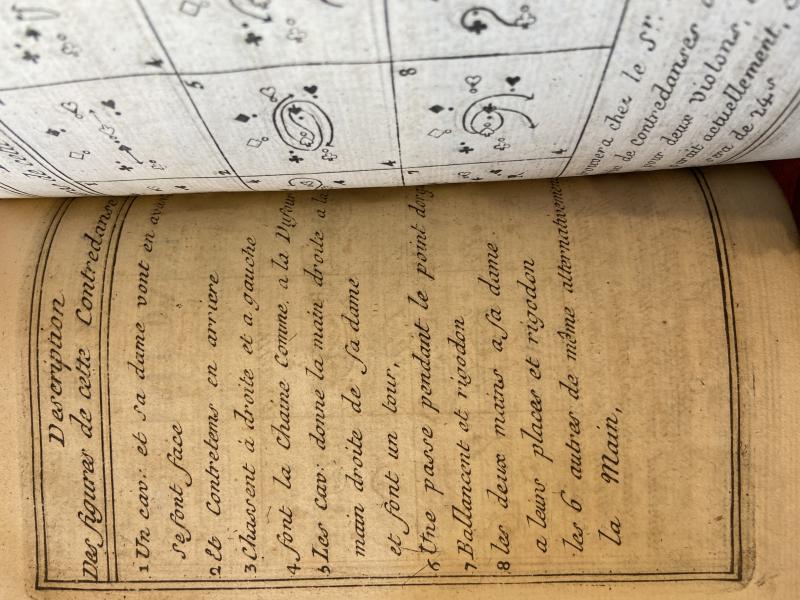 Description
Des figures de cette Contredanse
1 Un cav: et sa dame vont en avant
se font face
2 Et Contretems en arriere
3 Chassent à droite et a gauche
4 font la Chaine Comme a la
5 Les cav: donne la main droite a la
main droite de sa dame
et font un tour,
6 Une passe pendant le point
7 Ballancent et rigodon
8 les deux mains a sa dame
a leurs places et rigodon
les 6 autres de même alternativement
la Main,
chez le Sr.
de contredanses
deux violons,
actuellement,
de 24 s